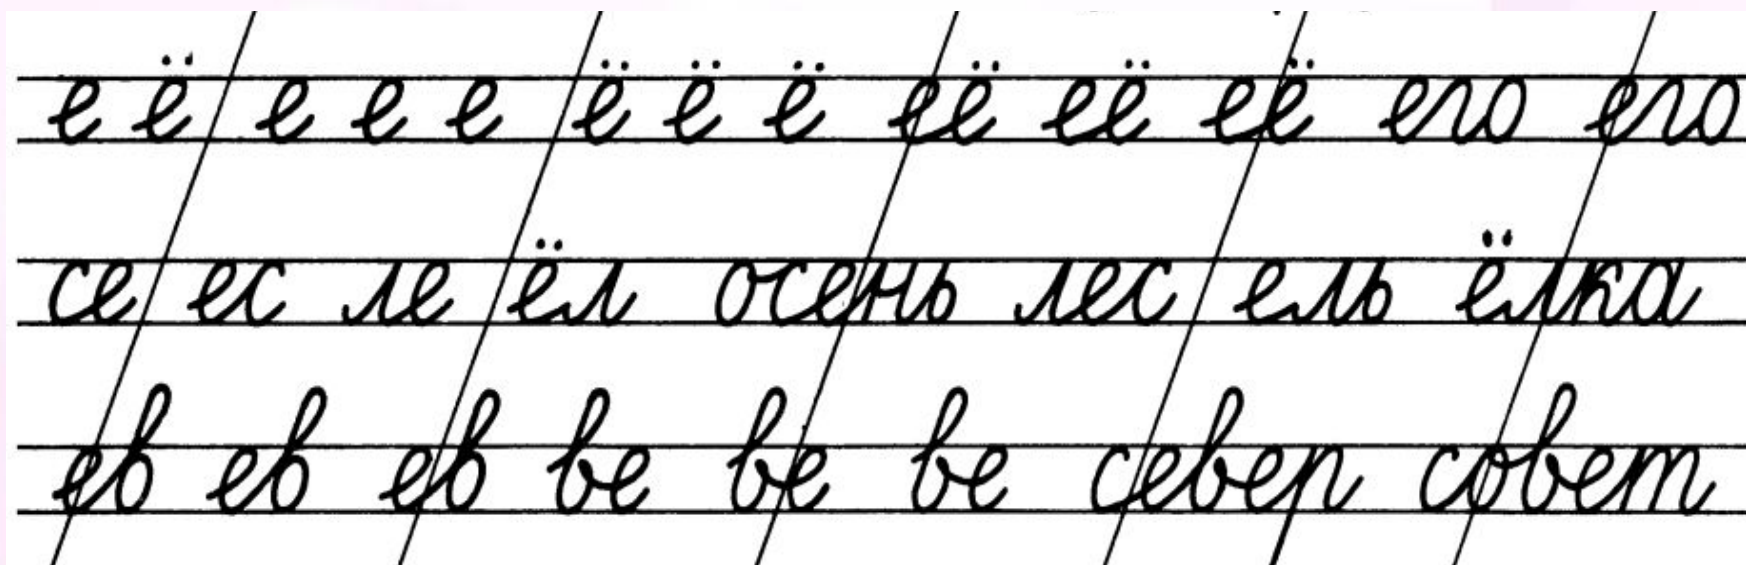 е ё е е е ё ё ё её её её его его
се ес ле ёл осень лес ель ёлка
ев ев ев ве ве ве север совет